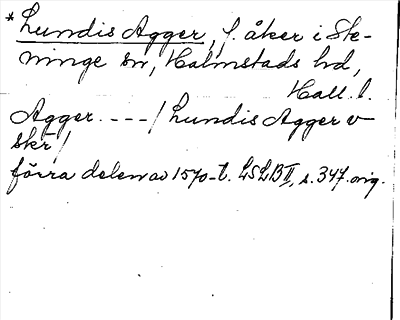 * Lundis Agger, f. åker i Ste-
ninge sn, Halmstads hd,
Hall. l.
Agger. --- / Lundis Agger v
skr /
förra delen av 1570-t. LSLB II, s. 347. orig.